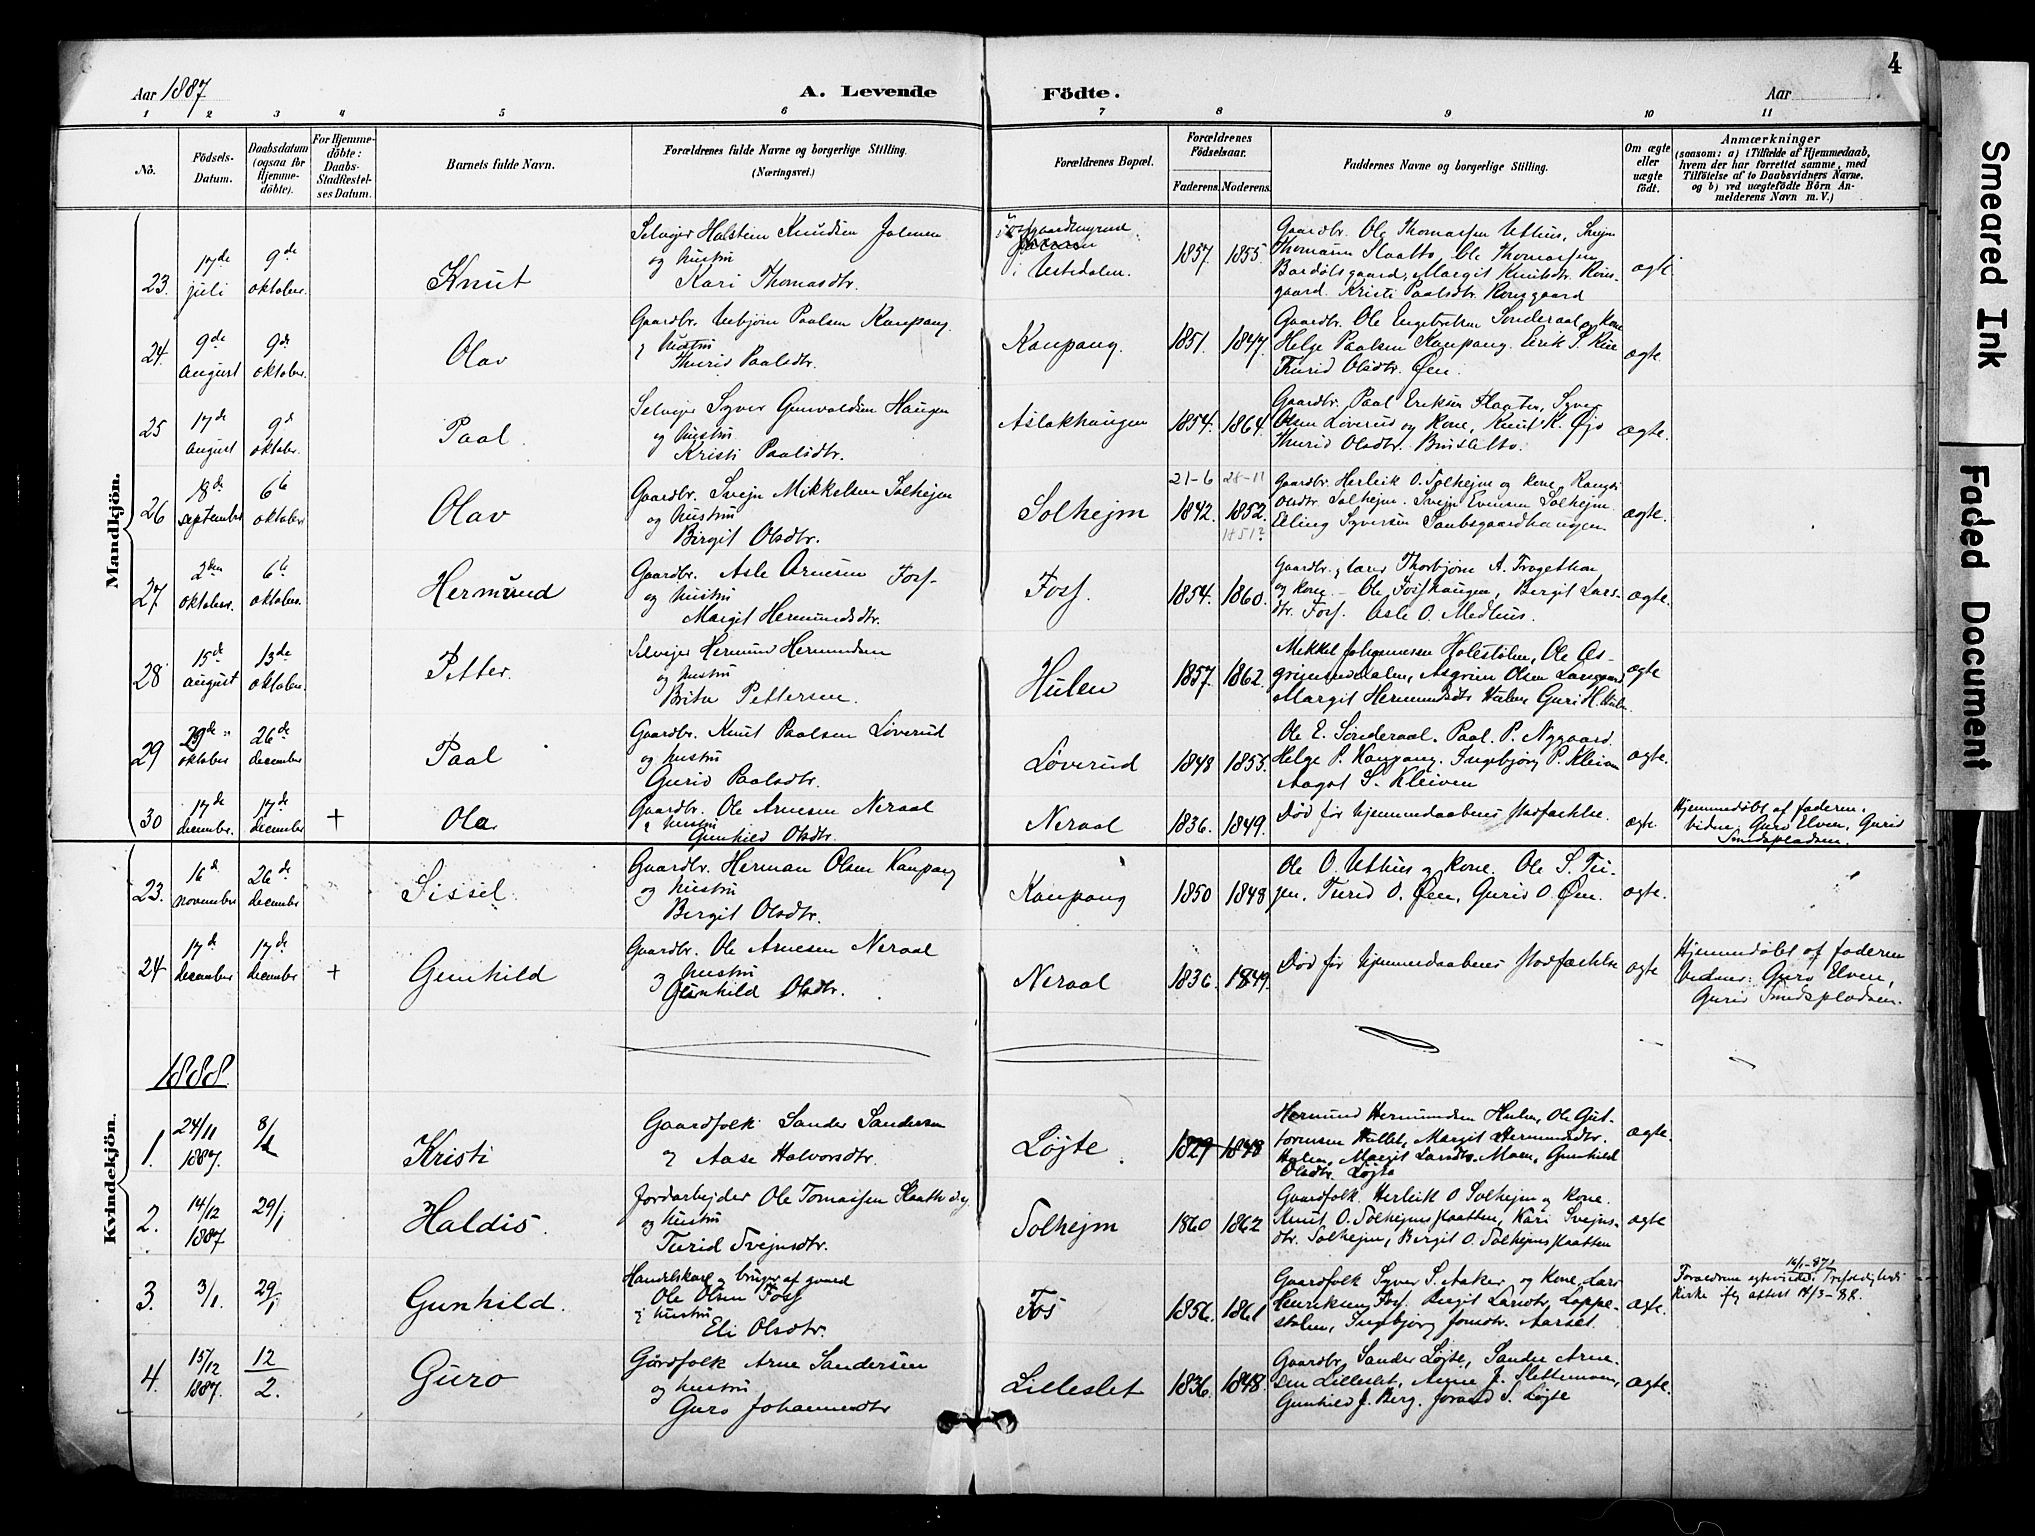 4
Aar 1887
A. Levende
Födte.
Aar
1 2 3 4 5 6 7 8 9 10 11
No.
Födsels-
Datum.
Daabsdatum
(ogsaa for
Hjemme-
döbte).
For Hjemme-
döbte:
Daabs-
Stadfæstel-
ses Datum.
Barnets fulde Navn.
Forældrenes fulde Navne og borgerlige Stilling.
(Næringsvei.)
Forældrenes Bopæl.
Forældrenes
Födselsaar.
Faderens. Moderens.
Faddernes Navne og borgerlige Stilling.
Om ægte
eller
uægte
födt.
Anmærkninger
(saasom: a) i Tilfælde af Hjemmedaab,
hvem der har forrettet samme, med
Tilföielse af to Daabsvidners Navne,
og b) ved uægtefödte Börn An-
melderens Navn m. V.)
Mandkjön.
23.
17de
juli
9de
oktober.
Knut
Selvejer Halstein Knudsen
og hustru
Kari Thomasdtr.
i Ustedalen.
1857. 1855.
Gaardbr. Ole Thomassen Uthus, Svejn
Thomassen Slaatto, Ole Thomassen
Bardølsgaard, Margit Knutsdtr. Rons-
gaard. Kristi Paalsdtr. Ronsgaard
ægte
24.
9de
august
9de
oktober.
Olav
Gaardbr. Asbjørn Paalsen Kaupang
og hustru
Thurid Paalsdtr.
Kaupang.
1851. 1847.
Gaardbr. Ole Engebretsen Sønderaal og kone
Helge Paalsen Kaupang. Eirik S.
Turid Olsdtr. Øen.
ægte.
25
17de
august
9d
oktober.
Paal.
Selvejer Syver Gunvaldsen Haugen
og hustru
Kristi Paalsdtr.
Aslakhaugen
1854. 1864.
Gaardbr. Paal Eriksen Slaatten, Syver
Olsen Løverud og kone, Knut K. Øjo
Thurid Olsdtr. Brusletto.
ægte.
26
18de
september
6te
oktober.
Olav
Gaardbr. Svejn Mikkelsen Solhejm
og hustru
Birgit Olsdtr.
Solhejm
21-6 28-11
1842. 1852.
1851?
Gaardbr. Herleik O. Solhejm og kone, Rangdi
Olsdtr. Solhejm. Svejn Evensen Solhejm.
Erling Syversen Saubsgaardhaugen
ægte.
27
2den
oktober.
6te
oktober.
Hermund
Gaardbr. Asle Arnesen Fosf-
og hustru
Margit Hermundsdtr.
Fosf.
1854. 1860.
Gaardbr. Thorbjørn A. Trogethon
og kone - Ole Fosfhaugen, Bergit Lars-
dtr. Fosf. Asle O. Medhus.
ægte.
28
15de
august
13de
oktober.
Petter.
Selvejer Hermund Hermundsen
og hustru
Brita Pettersen.
Hulen
1857. 1862.
Mikkel Johannessen Holestølen, Ole As-
grimsendalen, Asgrim Olsen
Margit Hermundsdtr Hulen Guri H. Hulen.
ægte
29
29de
oktober
26de
december
Paal
Gaardbr. Knut Paalsen Løverud
og hustru
Gurid Paalsdtr.
Løverud
1848 1855.
Ole E. Sønderaal. Paal. P. Nygaard.
Helge P. Kaupang. Ingebjørg P. Kleiven
Aagot S. Kleiven
ægte.
30
17de
december.
17de
december
+
Ola
Gaardbr. Ole Arnesen Neraal
og hustru
Gunhild Olsdtr.
Neraal
1836. 1849.
Død før hjemmedaabens stadfæstelse.
ægte.
Hjemmedøbt af faderen.
Vidner. Guro Elven, Gurid
Smedspladsen.
Kvindekjön.
23.
16de
november
26de
december
Sissel.
Gaardbr. Herman Olsen Kaupang
og hustru
Bergit Olsdtr.
Kaupang
1850 1848
Ole O. Uthus og kone. Ole S. Tui-
jen. Turid O. Øen, Gurid O. Øen.
ægte.
24
17de
december
17de
december
+
Gunhild
Gaardbr. Ole Arnesen Neraal
og hustru
Gunhild Olsdtr.
Neraal
1836. 1849.
Død før hjemmedaabens stadfæstelse
ægte
Hjemmedøbt af faderen
Vidner: Guro Elven,
Gurid Smedspladsen.
1888.
1.
24/11
1887.
8/1
Kristi
Gaardfolk. Sander Sandersen
og Aase Halvorsdtr.
Løjte.
1829 1848
Hermund Hermundsen Hulen, Ole Gut-
tormsen Hallet, Margit Hermundsdtr.
Hulen, Margit Larsdtr. Moen, Gunhild
Olsdtr. Løjte
ægte.
2.
14/12
1887
29/1
Haldis.
Jordarbejder Ole Tomassen Slaatto
og hustru
Turid Svejnsdtr.
Solhejm
1860 1862
Gaardfolk. Herleik O Solhejm og kone.
Knut O. Solhejmslaatten, Kari Svejns-
dtr. Solhejm, Bergit O. Solhejmslaatten
ægte
3.
3/1.
29/1
Gunhild.
Handelskarl og bruger af gaard
Ole Olsen Fosf
og hustru
Eli Olsdtr.
Fos
1856. 1861
Gaardfolk Syver S. Aaker og kone, Lars
Henriksen Fosf. Bergit Larsdtr. Loppe-
stolen, Ingebjørg Jonsdtr. Aarset.
ægte.
Forældrene Trefoldigheds
kirke ifg attest 14/3-88.
4.
15/12
1887.
12/2.
Guro
Gårdfolk Arne Sandersen
og hustru
Guro Johannesdtr
Lilleslet
1836. 1848.
Gaardbr. Sander Løjte, Sander Arne-
sen Lilleslet, Anne J. Slettemoen,
Gunhild J. Berg. Jorand S. Løjte
ægte.
Smeared Ink
Faded Document